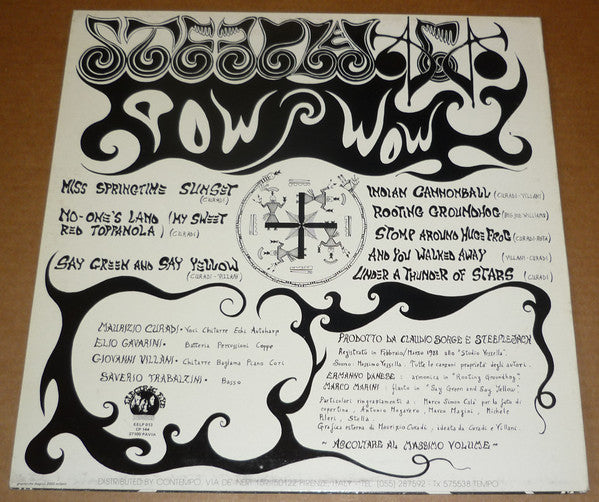 STEEPLEJACK
POW WOW
MISS SPRINGTIME SUNSET
(CURADI)
NO-ONE'S LAND (MY SWEET
RED TOPPANOLA) (CURADI)
SAY GREEN AND SAY YELLOW
(CURADI-VILLANI)
INDIAN CANNONBALL (CURADI-VILLANI)
ROOTING GROUNDHOG (BIG JOE WILLIAMS)
STOMP AROUND HUGE FROG (CURADI-ROTA)
AND YOU WALKED AWAY (VILLANI-CURADI)
UNDER A THUNDER OF STARS (CURADI)
MAURIZIO CURADI - Voci Chitarre Echi Autoharp
ELIO GAVARINI - Batteria Percussioni Coppe
GIOVANNI VILLANI - Chitarre Baglama Piano Cori
SAVERIO TRABALZINI - Basso
EELP 013
CP 144
27100 PAVIA
PRODOTTO DA CLAUDIO SORGE E STEEPLEJACK
Registrato in Febbraio/Marzo 1988 allo "Studio Vessella".
Suono: Messimo Vessella. Tutte le canzoni proprietà degli autori.
ERMANNO DANESE: armonica in "Rooting Groundhog".
MARCO MARINI: flauto in "Say Green and Say Yellow".
Particolari ringraziamenti a: Marco Simon Colà per la foto di
copertina, Antonio Magarero, Marco Magini, Michele
Pileri, Stella.
Grafica esterna di Maurizio Curadi, ideata da Curadi e Villani.
~ ASCOLTARE AL MASSIMO VOLUME ~
DISTRIBUTED BY CONTEMPO, VIA DE' NERI 15R, 50122 FIRENZE, ITALY - TEL. (055) 287592 - TX 575538 TEMPO